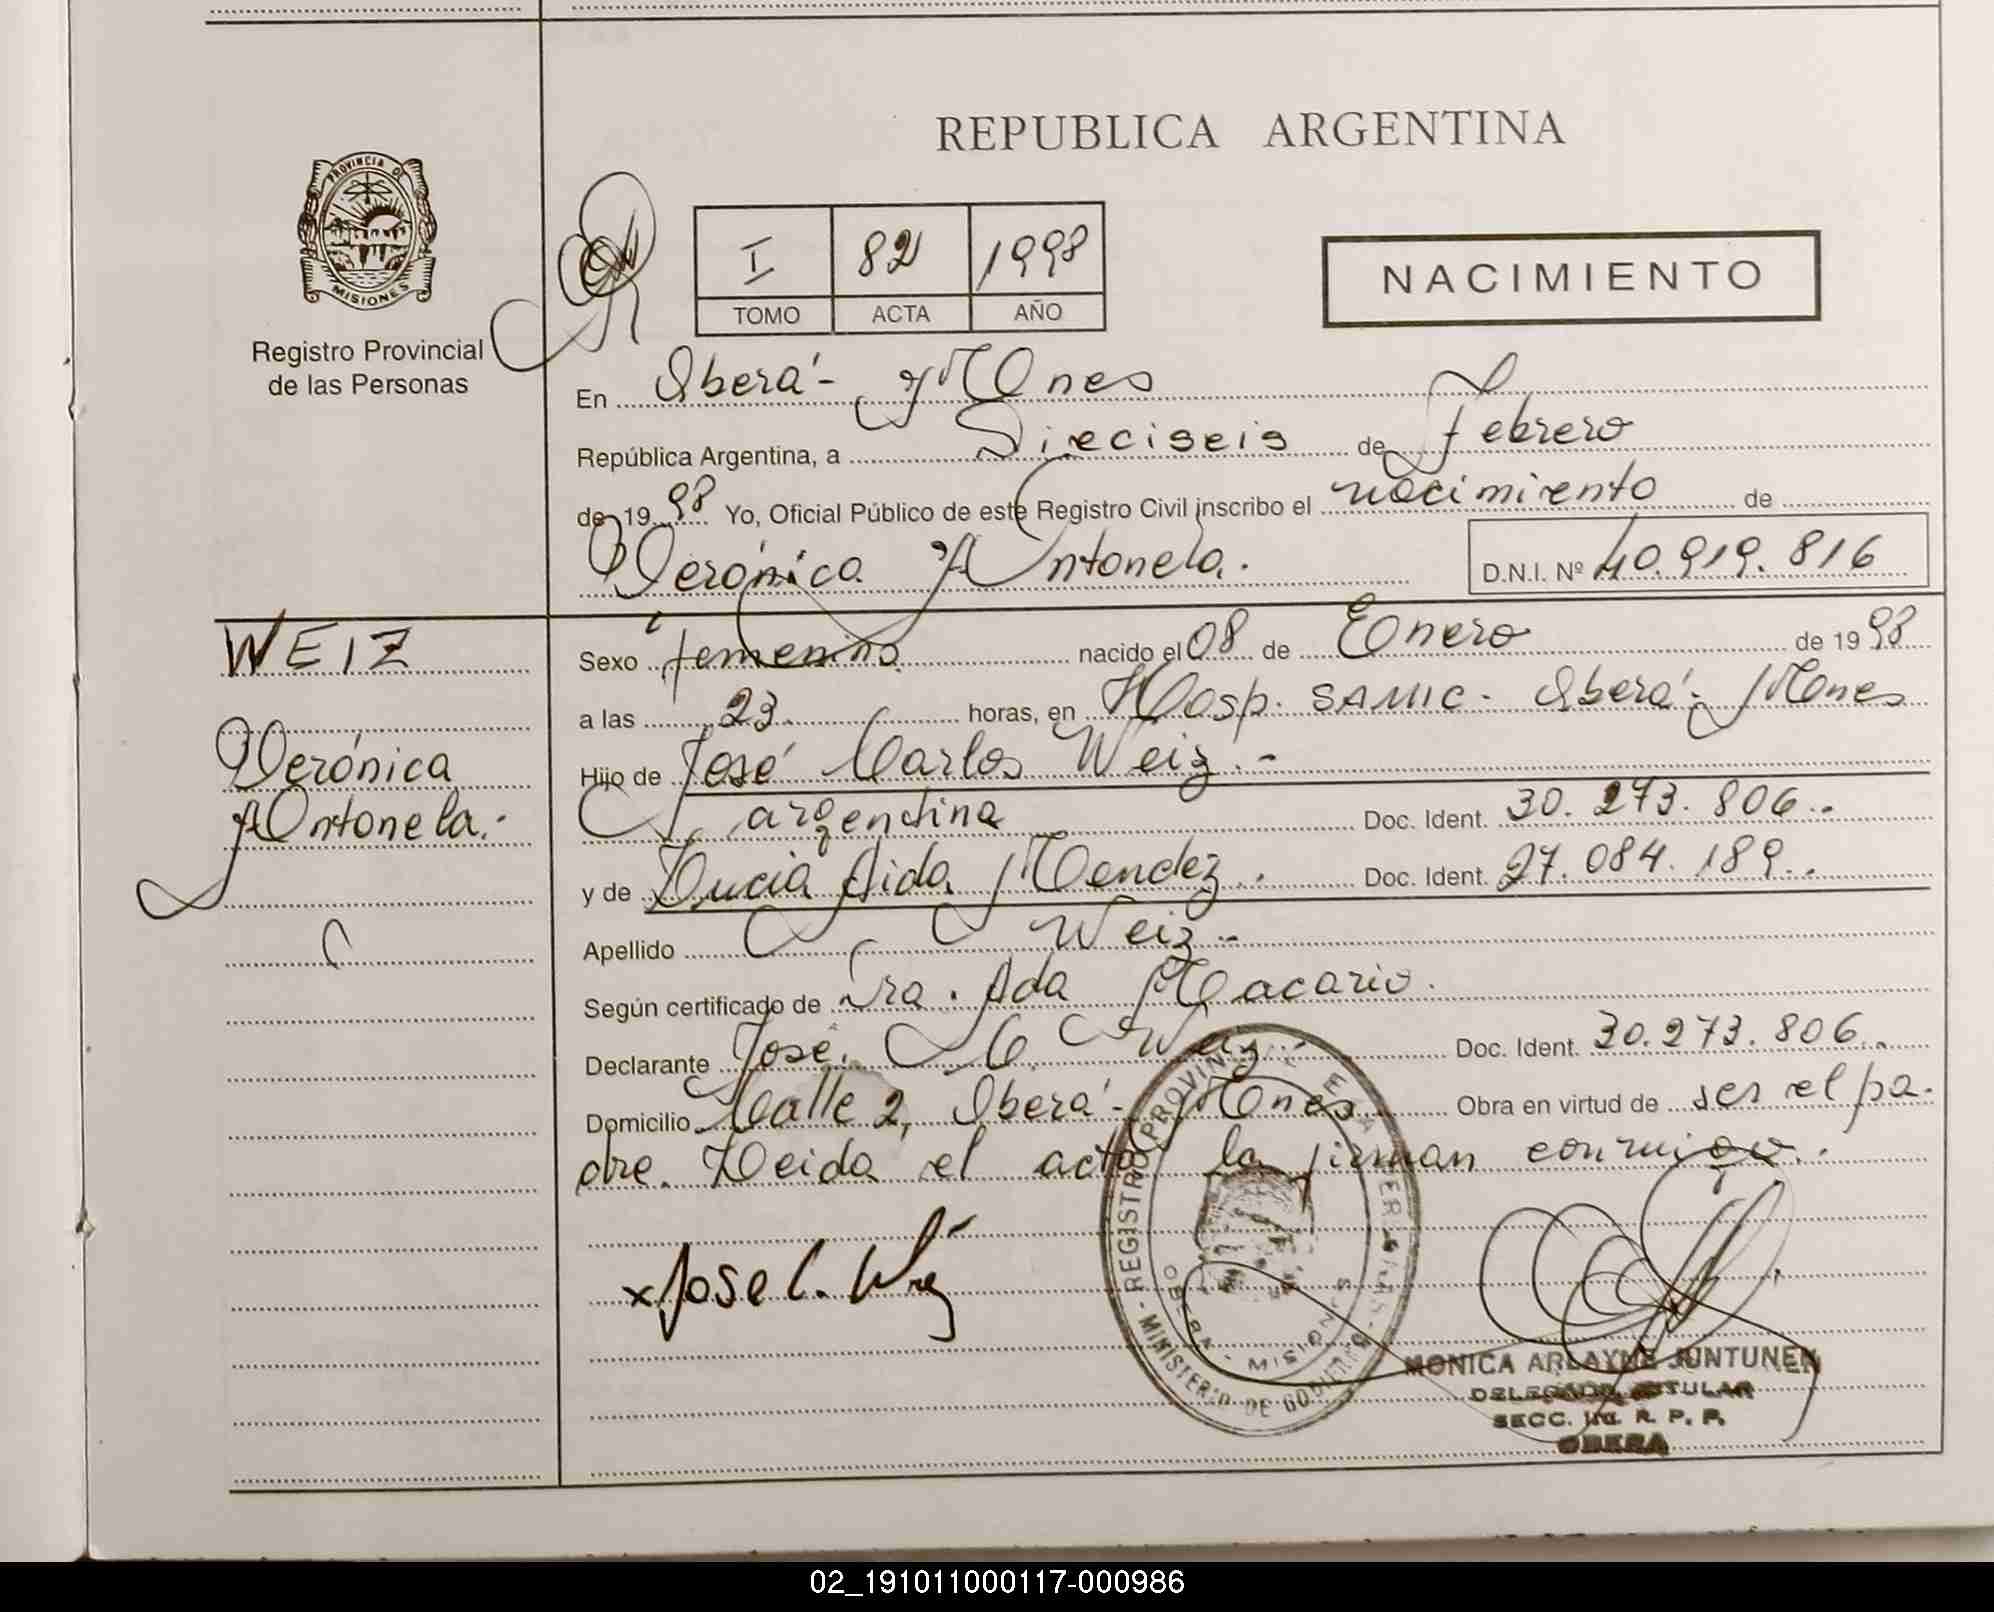 REPUBLICA ARGENTINA
PROVINCIA DE
MISIONES
Registro Provincial
de las Personas
I 82 1998
TOMO ACTA AÑO
NACIMIENTO
En Oberá - Mnes
República Argentina, a Dieciseis de Febrero
de 1998 Yo, Oficial Público de este Registro Civil inscribo el nacimiento de
Verónica Antonela. D.N.I. Nº 40.919.816
WEIZ
Verónica
Antonela.-
Sexo femenino nacido el 08 de Enero de 1998
a las 23 horas, en Hosp. SAMIC - Oberá - Mnes
Hijo de José Carlos Weiz.-
argentina Doc. Ident. 30.273.806..
y de Lucia Aida Mendez.. Doc. Ident. 27.084.189..
Apellido Weiz.-
Según certificado de Dra. Ada Macario.
Declarante José C. Weiz.- Doc. Ident. 30.273.806..
Domicilio Calle 2, Oberá - Mnes Obra en virtud de ser el pa-
dre. Leida el acta la firman conmigo..
x Jose C. Weiz
REGISTRO PROVINCIAL DE LAS PERSONAS
MINISTERIO DE GOBIERNO
OBERA - MISIONES
MONICA ARLAYNE JUNTUNEN
DELEGADA TITULAR
SECC. R. P. P.
OBERA
02_191011000117-000986